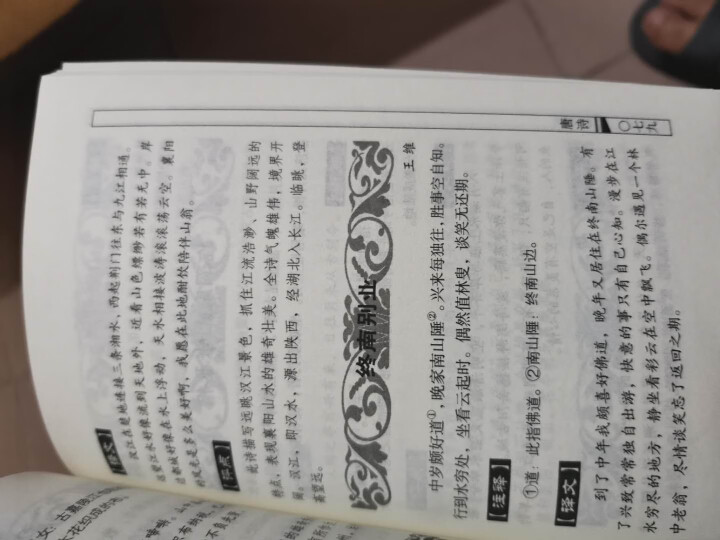 唐诗
〇七九
【译文】
汉江在楚地连接三条湘水，西起荆门往东与九江相通。
远望江水好像流到天地外，近看山色缥缈若有若无中。岸
边都城好像在水上浮动，天水相接波涛滚滚荡云空。襄阳
的风光是多么美好啊，我愿在此地酣饮陪伴山翁。
【临咸】
此诗描写远眺汉江景色，抓住江流浩渺、山野阔远的
特点，表现襄阳山水的雄奇壮美。全诗气魄雄伟，境界开
阔。汉江，即汉水，源出陕西，经湖北入长江。临眺，登
高望远。
终南别业
王 维
中岁颇好道①，晚家南山陲②。兴来每独往，胜事空自知。
行到水穷处，坐看云起时。偶然值林叟，谈笑无还期。
【注释】
①道：此指佛道。②南山陲：终南山边。
【译文】
到了中年我颇喜好佛道，晚年又居住在终南山陲。有
了兴致常常独自出游，快意的事只有自己心知。漫步在江
水穷尽的地方，静坐看彩云在空中飘飞。偶尔遇见一个林
中老翁，尽情谈笑忘了返回之期。